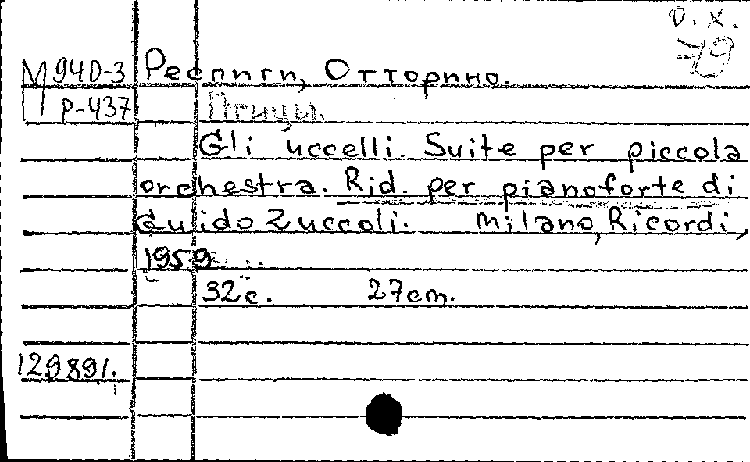 О. Х.
79
М 940-3 Респиги, Отторино.
Р-437 Птицы.
Gli uccelli. Suite per piccola
orchestra. Rid. per pianoforte di
Guido Zuccoli. Milano, Ricordi,
1959
32с. 27cm.
129891.